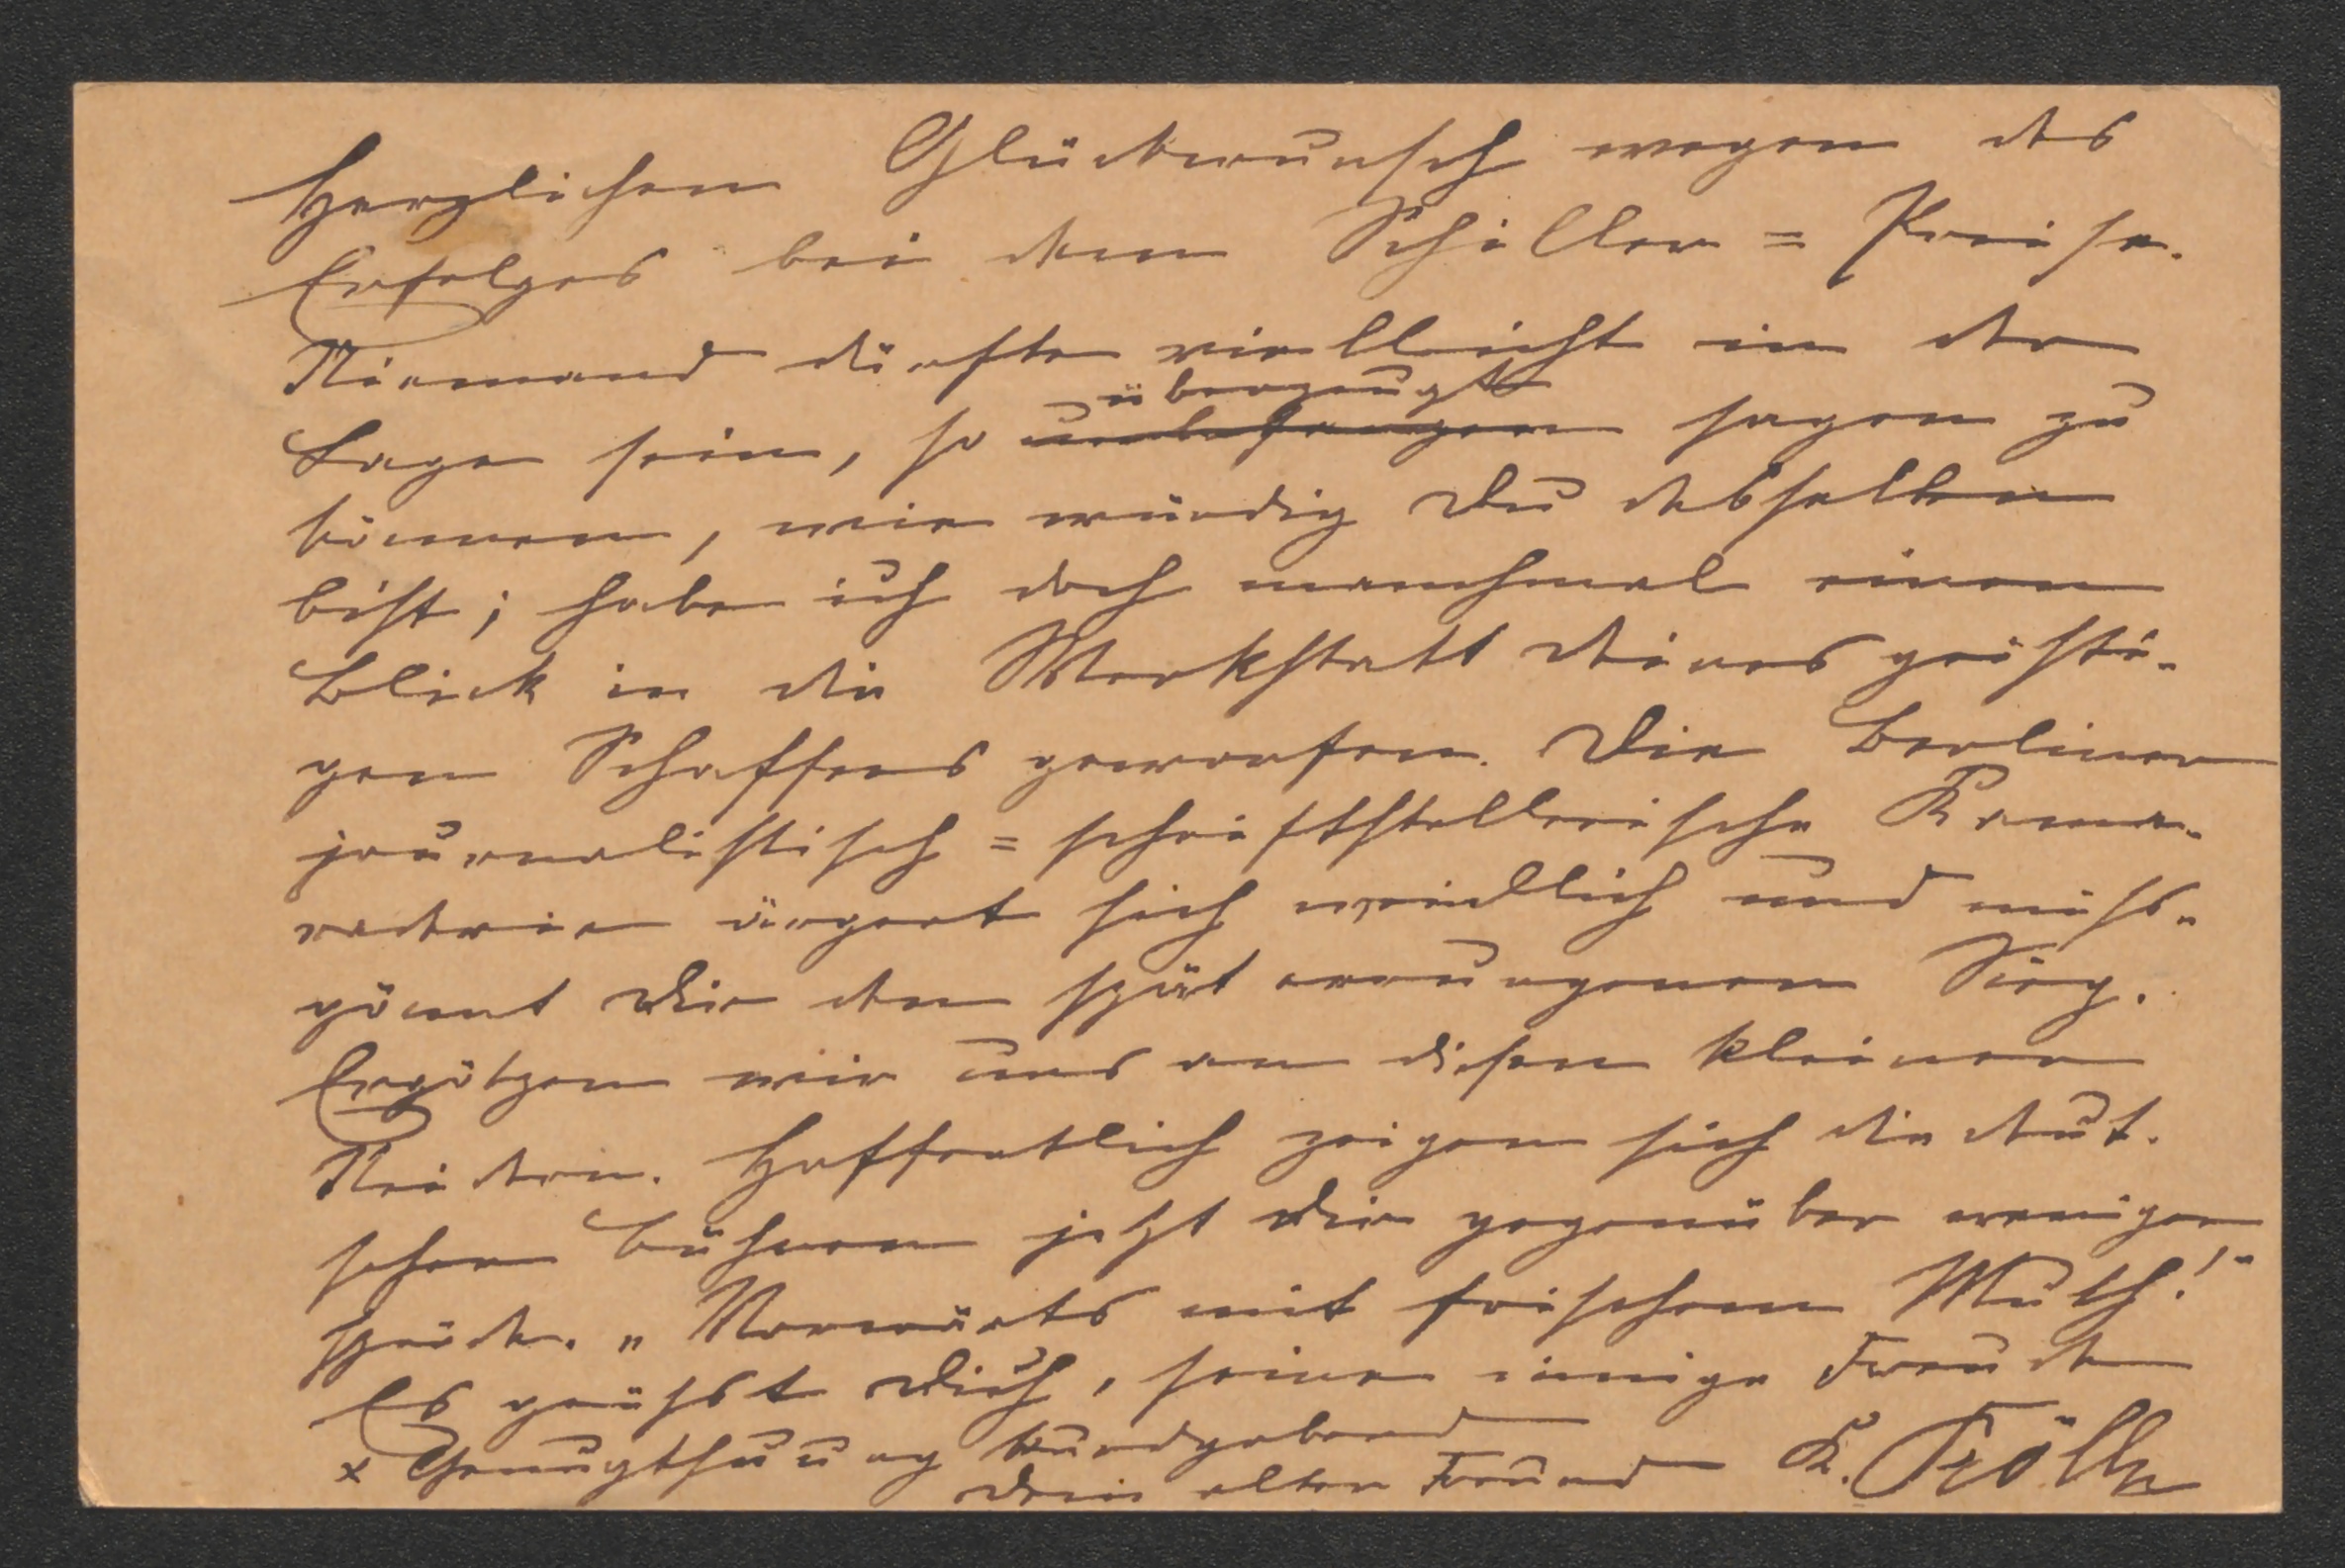 Herzlichen Glückwunsch wegen des
Erfolges bei dem Schiller=Preise.
Niemand dürfte vielleicht in der
überzeugt
Lage sein, so unbefangen sagen zu
können, wie würdig Du desselben
bist; habe ich doch manchmal einen
Blick in die Werkstatt Deines geisti-
gen Schaffens geworfen. Die Berliner
journalistisch=schriftstellerische Kama-
raderie ärgert sich weidlich und miss-
gönnt Dir den spät errungenen Sieg.
Ergötzen wir uns an diesen kleinen
Neidern. Hoffentlich zeigen sich die deut-
schen Bühnen jetzt Dir gegenüber weniger
spröde. „Vorwärts mit frischem Muth!"
Es grüsst Dich, seine innige Freude
& Genugthuung kundgebend
Dein alter Freund K. Pröll